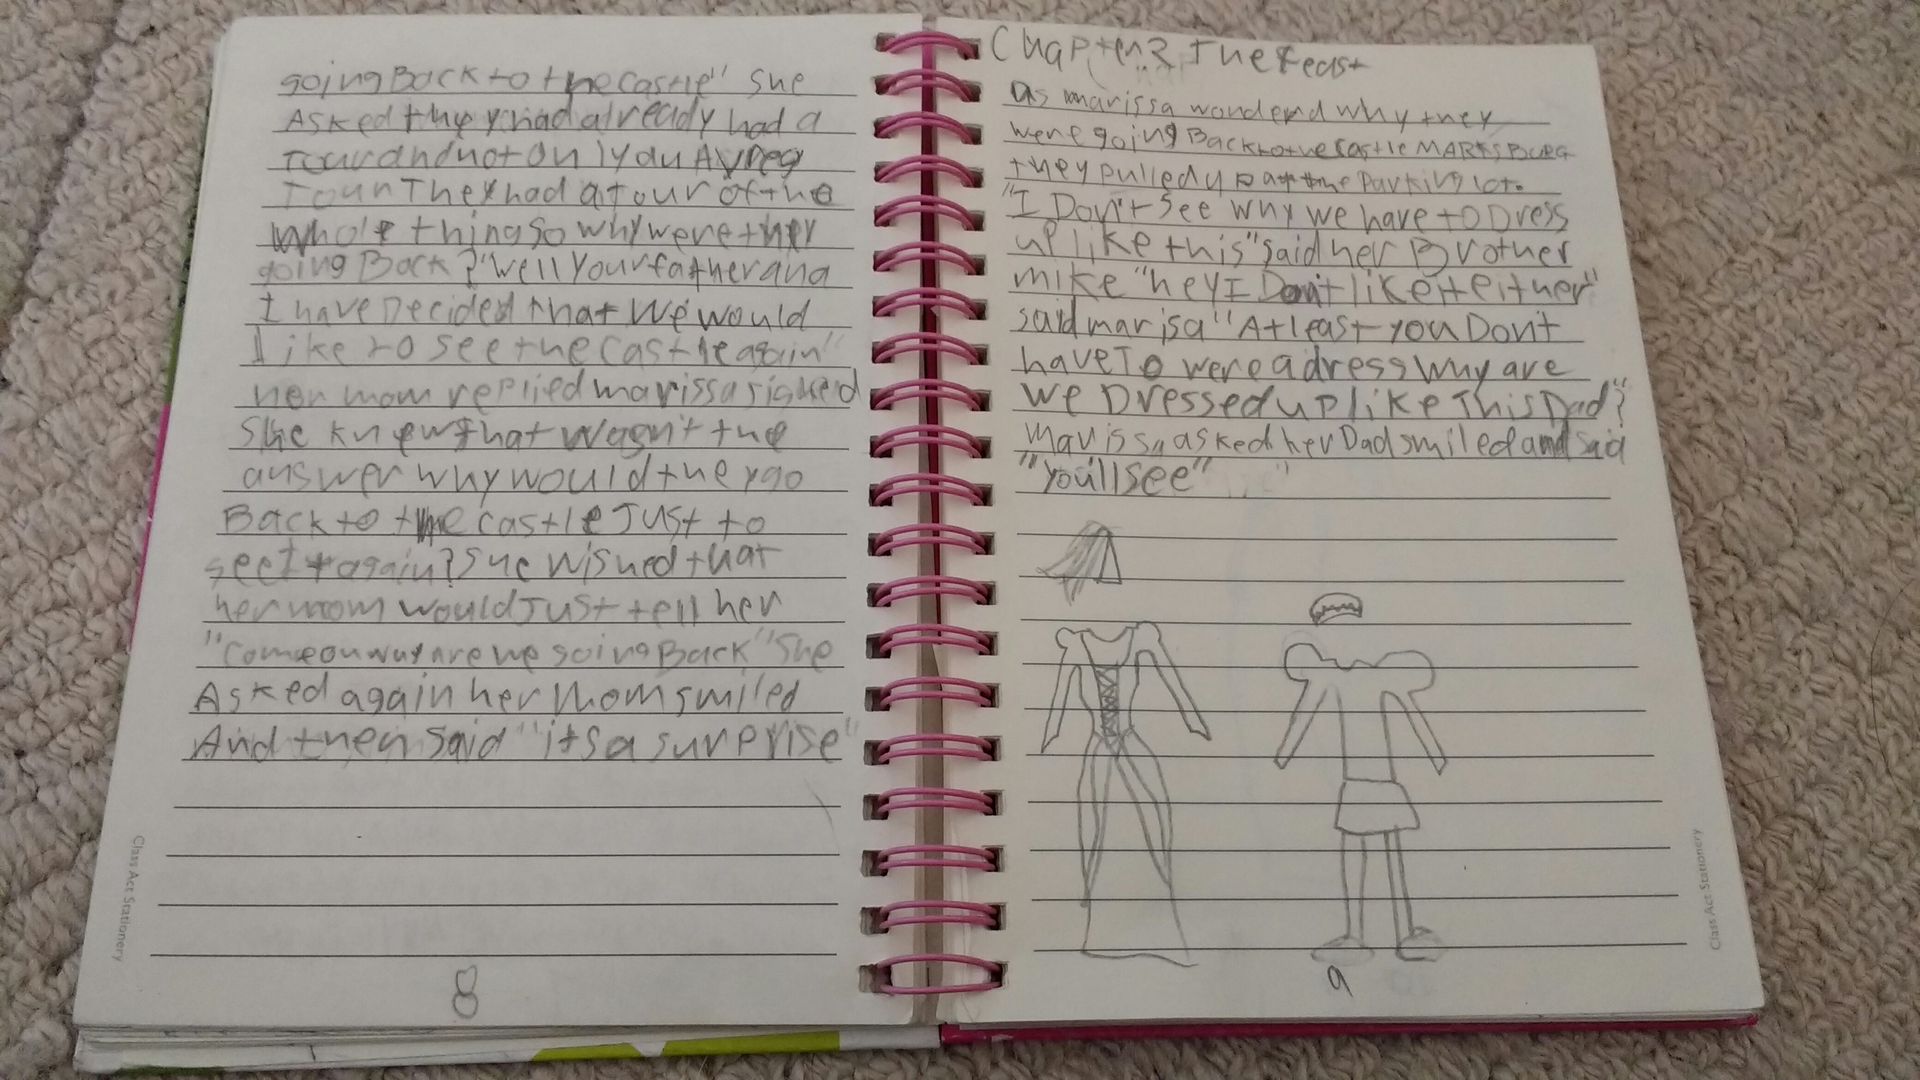 going Back to the castle" She
Asked they had already had a
Tour and not only an Avreg
Tour They had a tour of the
whole thing so why were they
going Back? "Well Your father and
I have Decided that We would
like to see the castle again"
her mom replied marissa sighed
She knew that wasn't the
answer why would they go
Back to the castle Just to
see it again? She wished that
her mom would Just tell her
"Come on why are we going Back" She
Asked again her Mom smiled
And then Said "its a surprise"
8
Class Act Stationery
Chapter 2 The feast
as marissa wonderd why they
were going Back to the castle MARKSBURG
they pulled up at the Parking lot.
"I Don't see why we have to Dress
up like this" said her Brother
mike "hey I Don't like it either"
said marisa "At least you Don't
have To were a dress Why are
we Dressed up like This Dad"?
Marissa asked her Dad smiled and said
"You'll see"
9
Class Act Stationery